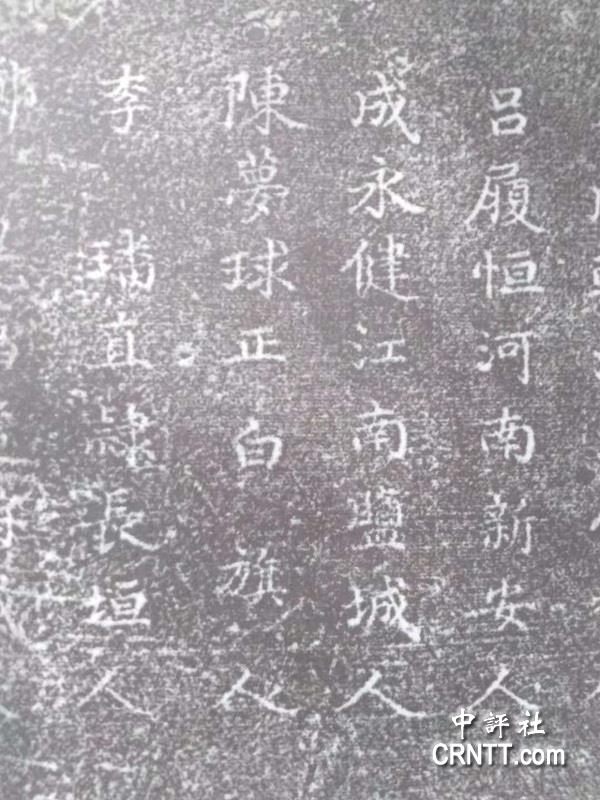 吕履恒河南新安人
成永健江南鹽城人
陳夢球正白旗人
李瑀直隷長垣人
中評社
CRNTT.com